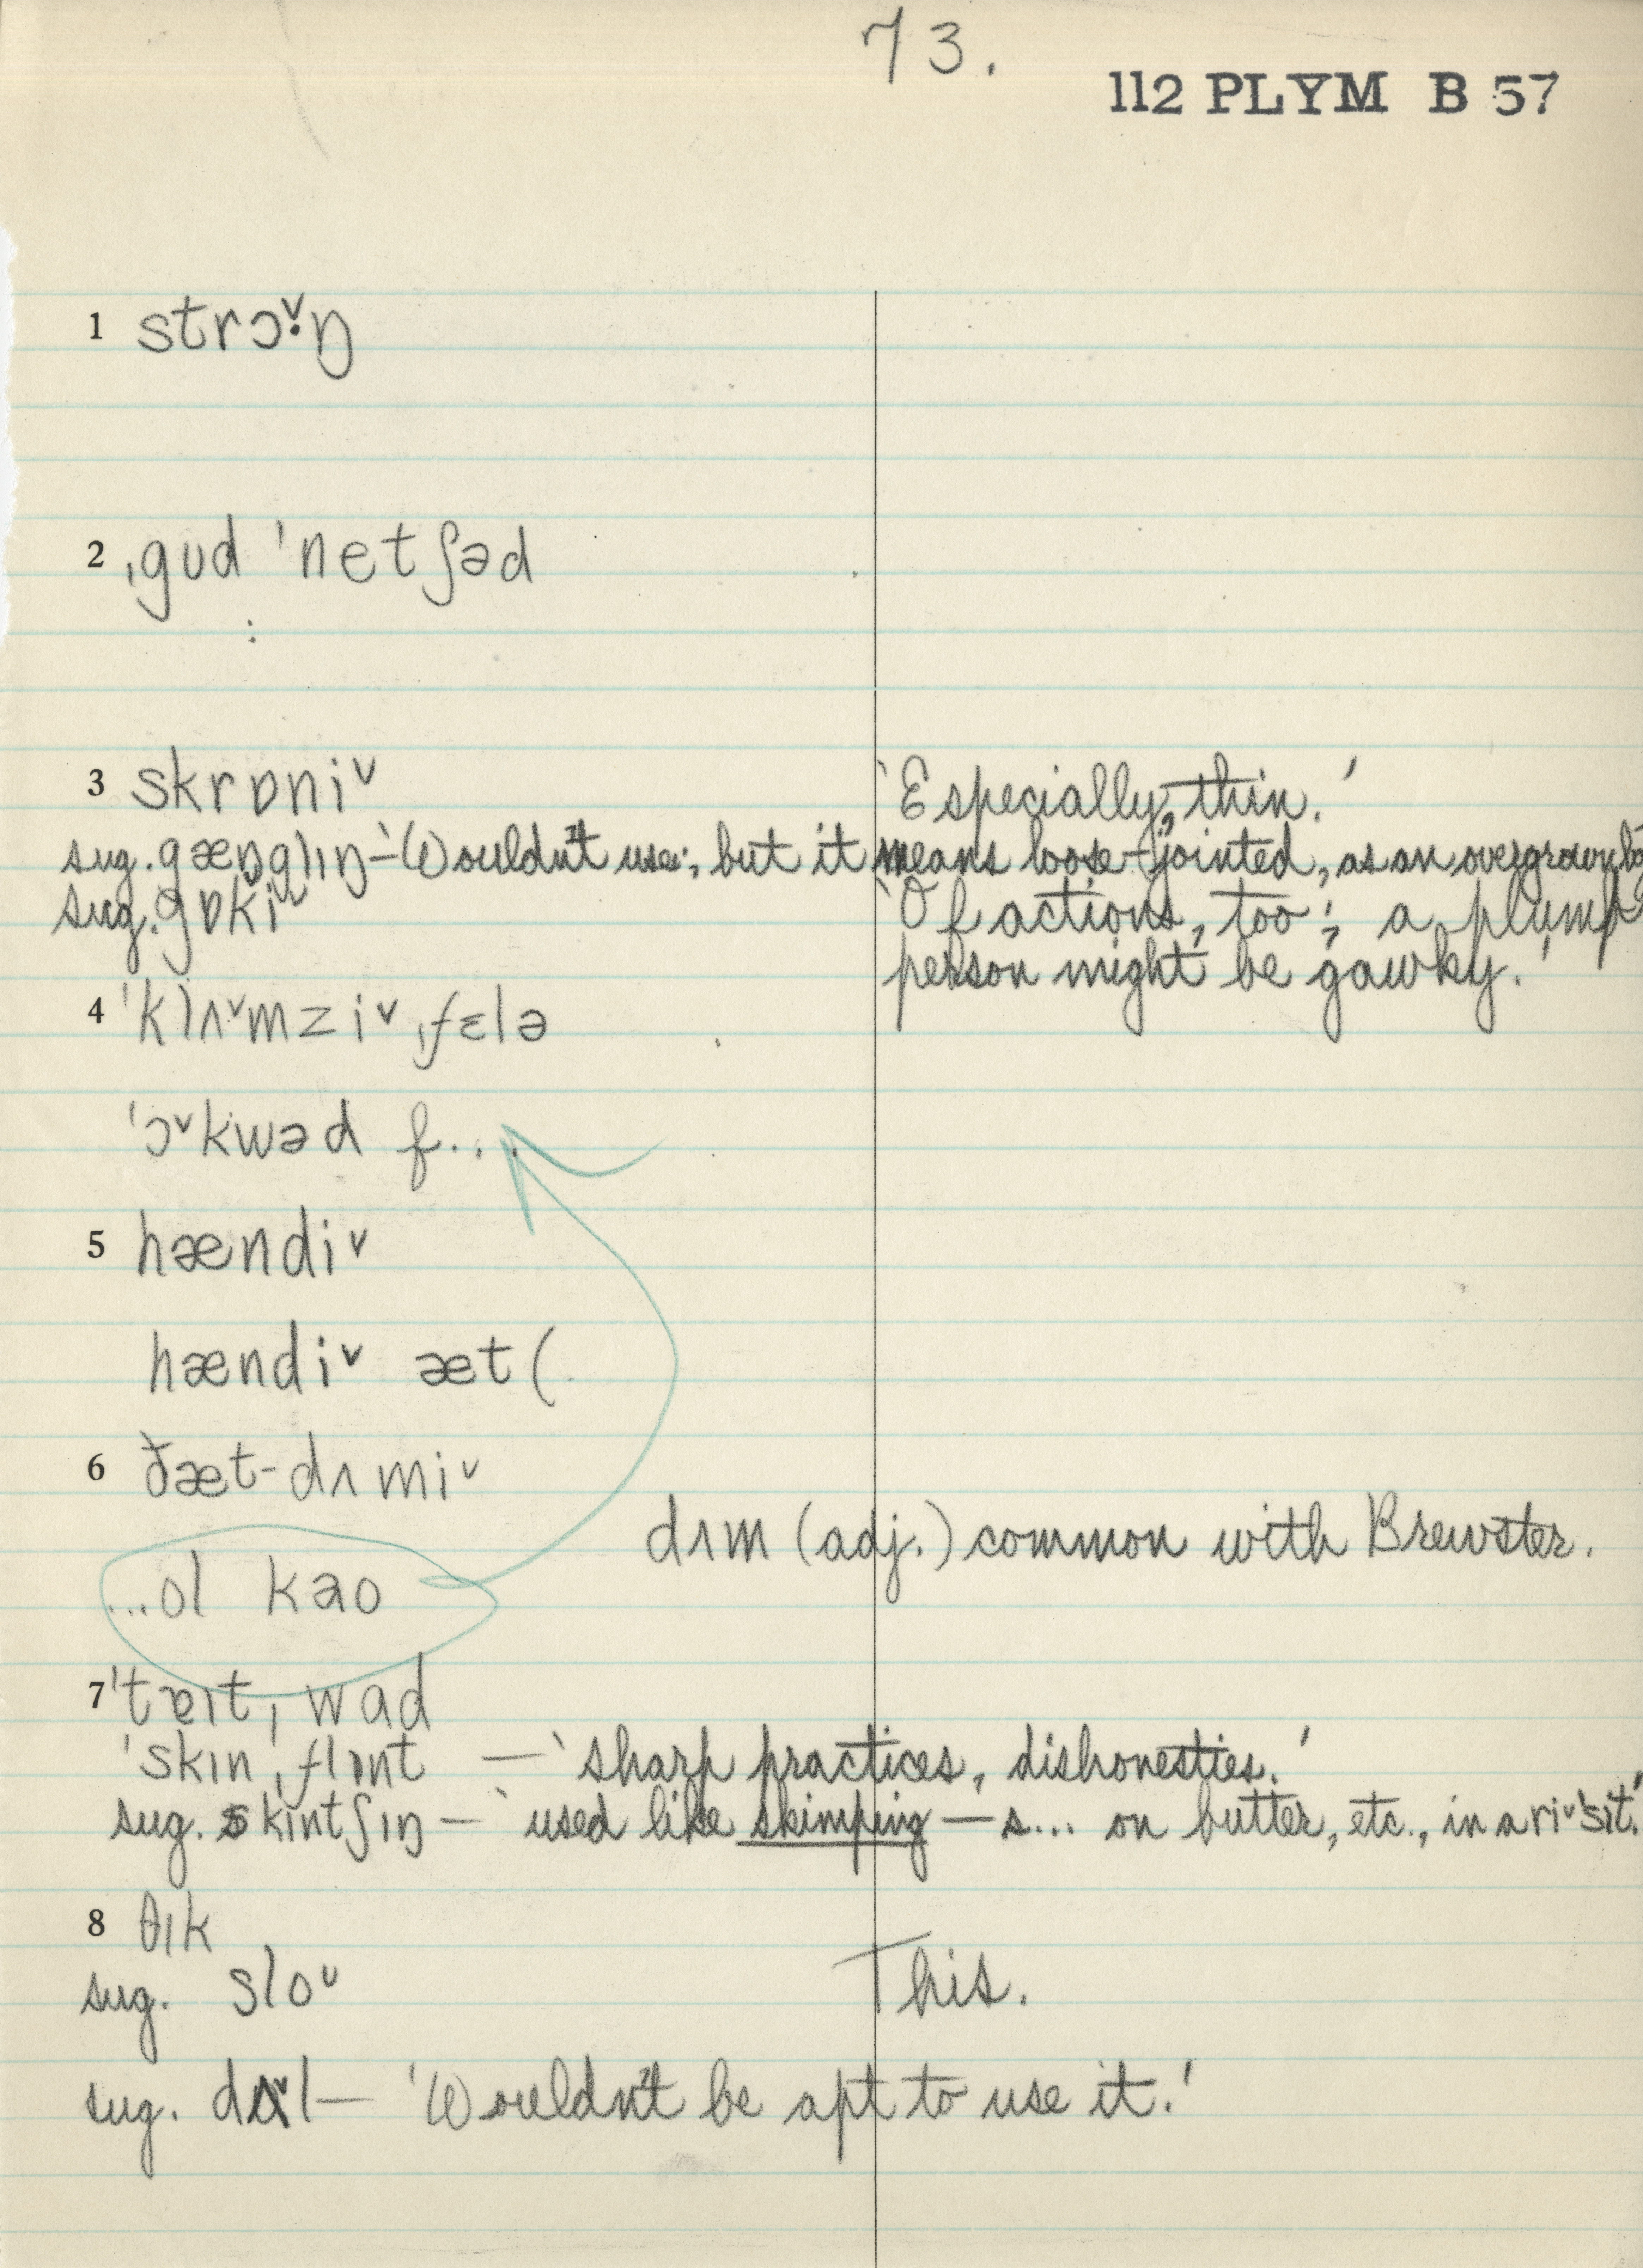 73.
112 PLYM B 57
1 strɔˇ·ŋ
2 ˌgʊd ˈnetʃəd
:
3 skrɒniˇ 'Especially, thin.'
sug. gæŋglɪŋ – 'Wouldn't use; but it means loose-jointed, as an overgrown
sug. gɒkiˇ 'Of actions, too; a plump
person might be gawky.'
4 ˈklʌˇmziˇ ˌfɛlə
ˈɔˇkwəd f...
5 hændiˇ
hændiˇ æt (
6 ðæt-dʌmiˇ
dʌm (adj.) common with Brewster.
...ol kaʊ
7 ˈtɐɪtˌwad
ˈskɪnˌflɪnt — 'sharp practices, dishonesties.'
sug. skintʃɪŋ — 'used like skimping — s... on butter, etc., in a riˇˈsit.'
8 θɪk
sug. sloˇ This.
sug. dʌˇl — 'Wouldn't be apt to use it.'